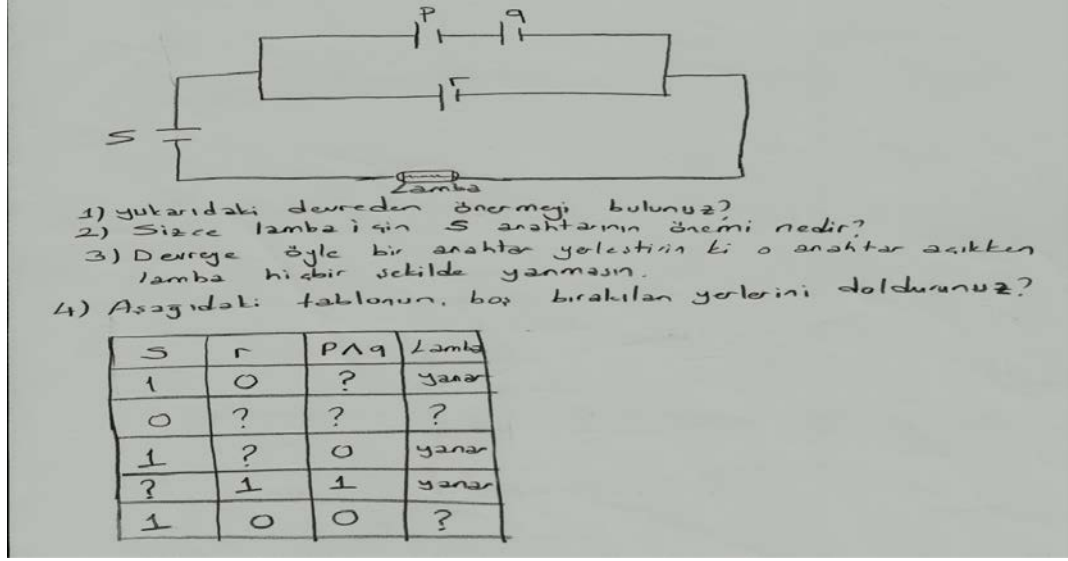 P q
r
S
Lamba
1) yukarıdaki devreden önermeyi bulunuz?
2) Sizce lamba için S anahtarının önemi nedir?
3) Devreye öyle bir anahtar yerleştirin ki o anahtar açıkken
lamba hiçbir şekilde yanmasın.
4) Aşağıdaki tablonun, boş bırakılan yerlerini doldurunuz?
S r P∧q Lamba
1 0 ? yanar
0 ? ? ?
1 ? 0 yanar
? 1 1 yanar
1 0 0 ?